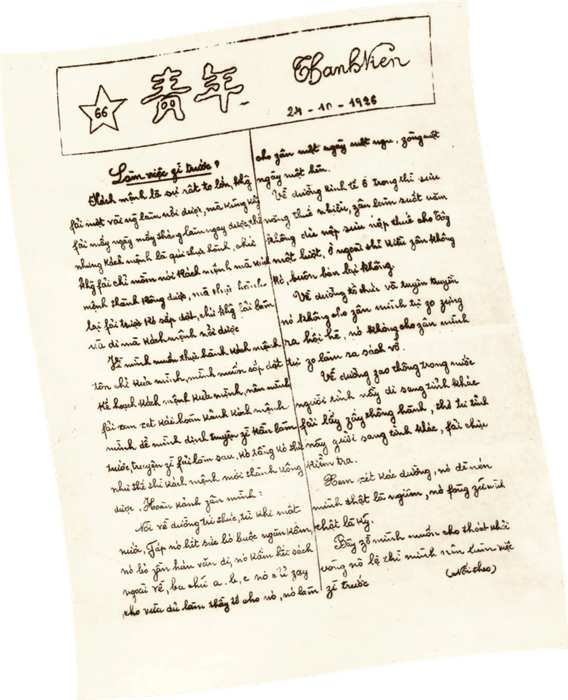 66
青年
Thanh Niên
24 - 10 - 1926
Làm việc zì trước?
Kách mệnh là sự rất to lớn, khg
fải một vài ng làm nổi được, mà kũng khg
fải mấy ngày mấy tháng làm ngay được, thì
nhưng kách mệnh là qúi thực hành, chứ
khg fải chỉ nằm nói kách mệnh mà kách
mệnh thành kông được, mà thực hành
lại fải trước kó sắp đặt, chứ khg fải làm
vu đi mà kách mệnh nổi được
Zì mình muốn thực hành kách mệnh
tôn chỉ kủa mình, mình muốn sắp đặt
kế hoạch kách mệnh kủa mình, nên mình
fải xem xét kái hoàn kảnh kách mệnh
mình để mình định truyện zì kần làm
trước, truyện zì fải làm sau, kó zồng kó thứ
như thế thì kách mệnh mới thành kông
được. Hoàn kảnh zân mình:
Nói về đường trí thức, từ khi mất
nước, Fáp nó hết sức bó buộc ngăn kấm,
nó bỏ zần hán văn đi, nó kấm hết sách
ngoài về, ba chữ a. b. c nó chỉ zạy
cho vừa đủ làm thầy tớ cho nó, nó làm
cho zân một ngày một ngu, zống một
ngày một hèn.
Về đường kinh tế ở trong thì sưu
nặng thuế nhiều, zân làm suốt năm
không đủ nộp sưu nộp thuế cho tây
một lượt, ở ngoài thì kiều zân không
kó, buôn bán lại không.
Về đường tổ chức và tuyên truyền
nó không cho zân mình tự zo zựng
ra hội hè, nó không cho zân mình
tự zo làm ra sách vở.
Về đường zao thông trong nước
người tỉnh nầy đi sang tỉnh khác
fải lấy zấy thông hành, thì từ tỉnh
nầy zưới sang tỉnh khác, fải chịu
kiểm tra.
Xem xét kác đường, nó đè nén
mình thật là ngiêm, nó fòng zữ mình
thật là kỹ.
Bây zờ mình muốn cho thoát khỏi
vòng nô lệ thì mình nên làm việc
zì trước
(Nối theo)